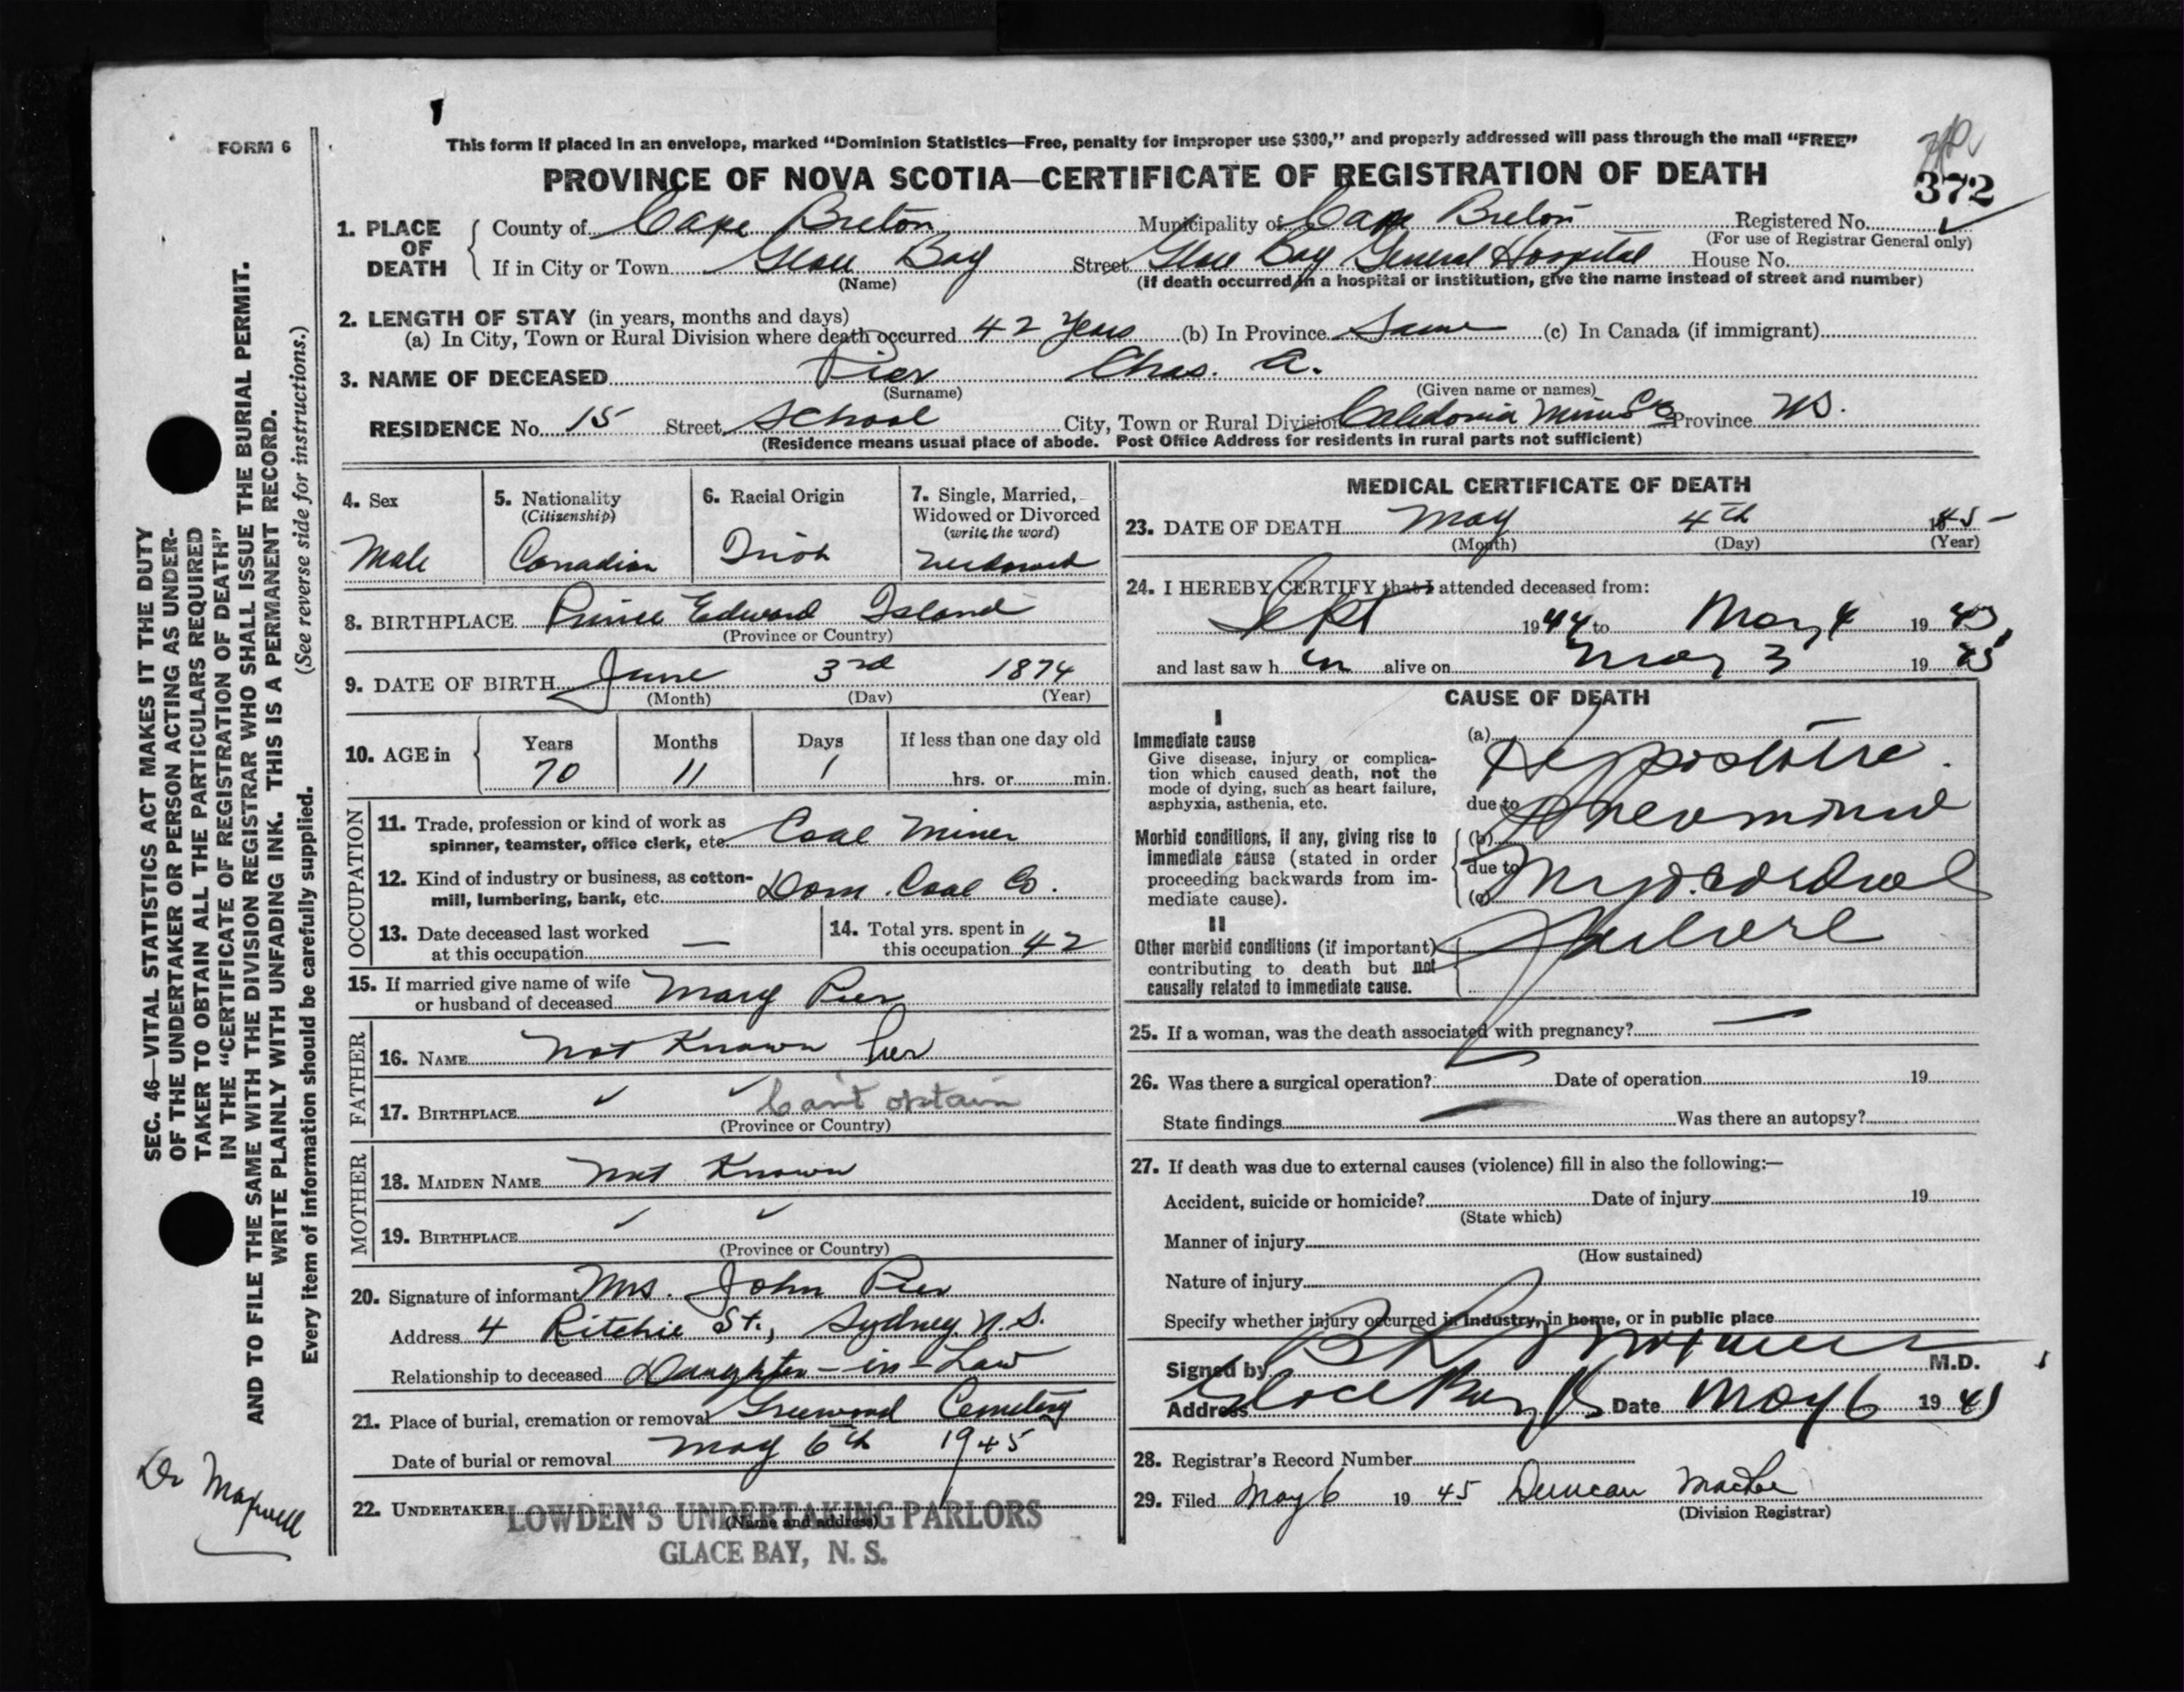 FORM 6
This form if placed in an envelope, marked “Dominion Statistics—Free, penalty for improper use $300,” and properly addressed will pass through the mail “FREE”
PROVINCE OF NOVA SCOTIA—CERTIFICATE OF REGISTRATION OF DEATH
372
1. PLACE OF DEATH
County of Cape Breton Municipality of Cape Breton Registered No.
(For use of Registrar General only)
If in City or Town Glace Bay Street Glace Bay General Hospital House No.
(Name) (If death occurred in a hospital or institution, give the name instead of street and number)
2. LENGTH OF STAY (in years, months and days)
(a) In City, Town or Rural Division where death occurred 42 Years (b) In Province Same (c) In Canada (if immigrant)
3. NAME OF DECEASED Pier Chas. A.
(Surname) (Given name or names)
RESIDENCE No. 15 Street School City, Town or Rural Division Caledonia Mines CB Province NS.
(Residence means usual place of abode. Post Office Address for residents in rural parts not sufficient)
4. Sex
Male
5. Nationality
(Citizenship)
Canadian
6. Racial Origin
Irish
7. Single, Married,
Widowed or Divorced
(write the word)
Widowed
8. BIRTHPLACE Prince Edward Island
(Province or Country)
9. DATE OF BIRTH June 3rd 1874
(Month) (Day) (Year)
10. AGE in
Years Months Days If less than one day old
70 11 1 hrs. or min.
OCCUPATION
11. Trade, profession or kind of work as
spinner, teamster, office clerk, etc. Coal Miner
12. Kind of industry or business, as cotton-
mill, lumbering, bank, etc. Dom. Coal Co.
13. Date deceased last worked
at this occupation —
14. Total yrs. spent in
this occupation 42
15. If married give name of wife
or husband of deceased Mary Pier
FATHER
16. NAME Not Known Pier
17. BIRTHPLACE ✓ ✓ Can't obtain
(Province or Country)
MOTHER
18. MAIDEN NAME Not Known
19. BIRTHPLACE ✓ ✓
(Province or Country)
20. Signature of informant Mrs. John Pier
Address 4 Ritchie St., Sydney, N.S.
Relationship to deceased Daughter-in-Law
21. Place of burial, cremation or removal Greenwood Cemetery
Date of burial or removal May 6th 1945
22. UNDERTAKER LOWDEN'S UNDERTAKING PARLORS
(Name and address)
GLACE BAY, N. S.
MEDICAL CERTIFICATE OF DEATH
23. DATE OF DEATH May 4th 1945
(Month) (Day) (Year)
24. I HEREBY CERTIFY that I attended deceased from:
Sept 1944 to May 4 1945
and last saw h im alive on May 3 1945
CAUSE OF DEATH
I
Immediate cause
Give disease, injury or complica-
tion which caused death, not the
mode of dying, such as heart failure,
asphyxia, asthenia, etc.
Morbid conditions, if any, giving rise to
immediate cause (stated in order
proceeding backwards from im-
mediate cause).
II
Other morbid conditions (if important)
contributing to death but not
causally related to immediate cause.
(a) Hypostatic
due to
(b) Pneumonia
due to
(c) Myocardial
Failure
25. If a woman, was the death associated with pregnancy? —
26. Was there a surgical operation? Date of operation 19
State findings — Was there an autopsy?
27. If death was due to external causes (violence) fill in also the following:—
Accident, suicide or homicide? Date of injury 19
(State which)
Manner of injury
(How sustained)
Nature of injury
Specify whether injury occurred in industry, in home, or in public place
Signed by M.D.
Address Glace Bay Date May 6 1945
28. Registrar's Record Number
29. Filed May 6 19 45 Duncan
(Division Registrar)
SEC. 46—VITAL STATISTICS ACT MAKES IT THE DUTY
OF THE UNDERTAKER OR PERSON ACTING AS UNDER-
TAKER TO OBTAIN ALL THE PARTICULARS REQUIRED
IN THE “CERTIFICATE OF REGISTRATION OF DEATH”
AND TO FILE THE SAME WITH THE DIVISION REGISTRAR WHO SHALL ISSUE THE BURIAL PERMIT.
WRITE PLAINLY WITH UNFADING INK. THIS IS A PERMANENT RECORD.
Every item of information should be carefully supplied. (See reverse side for instructions.)
Dr Maxwell